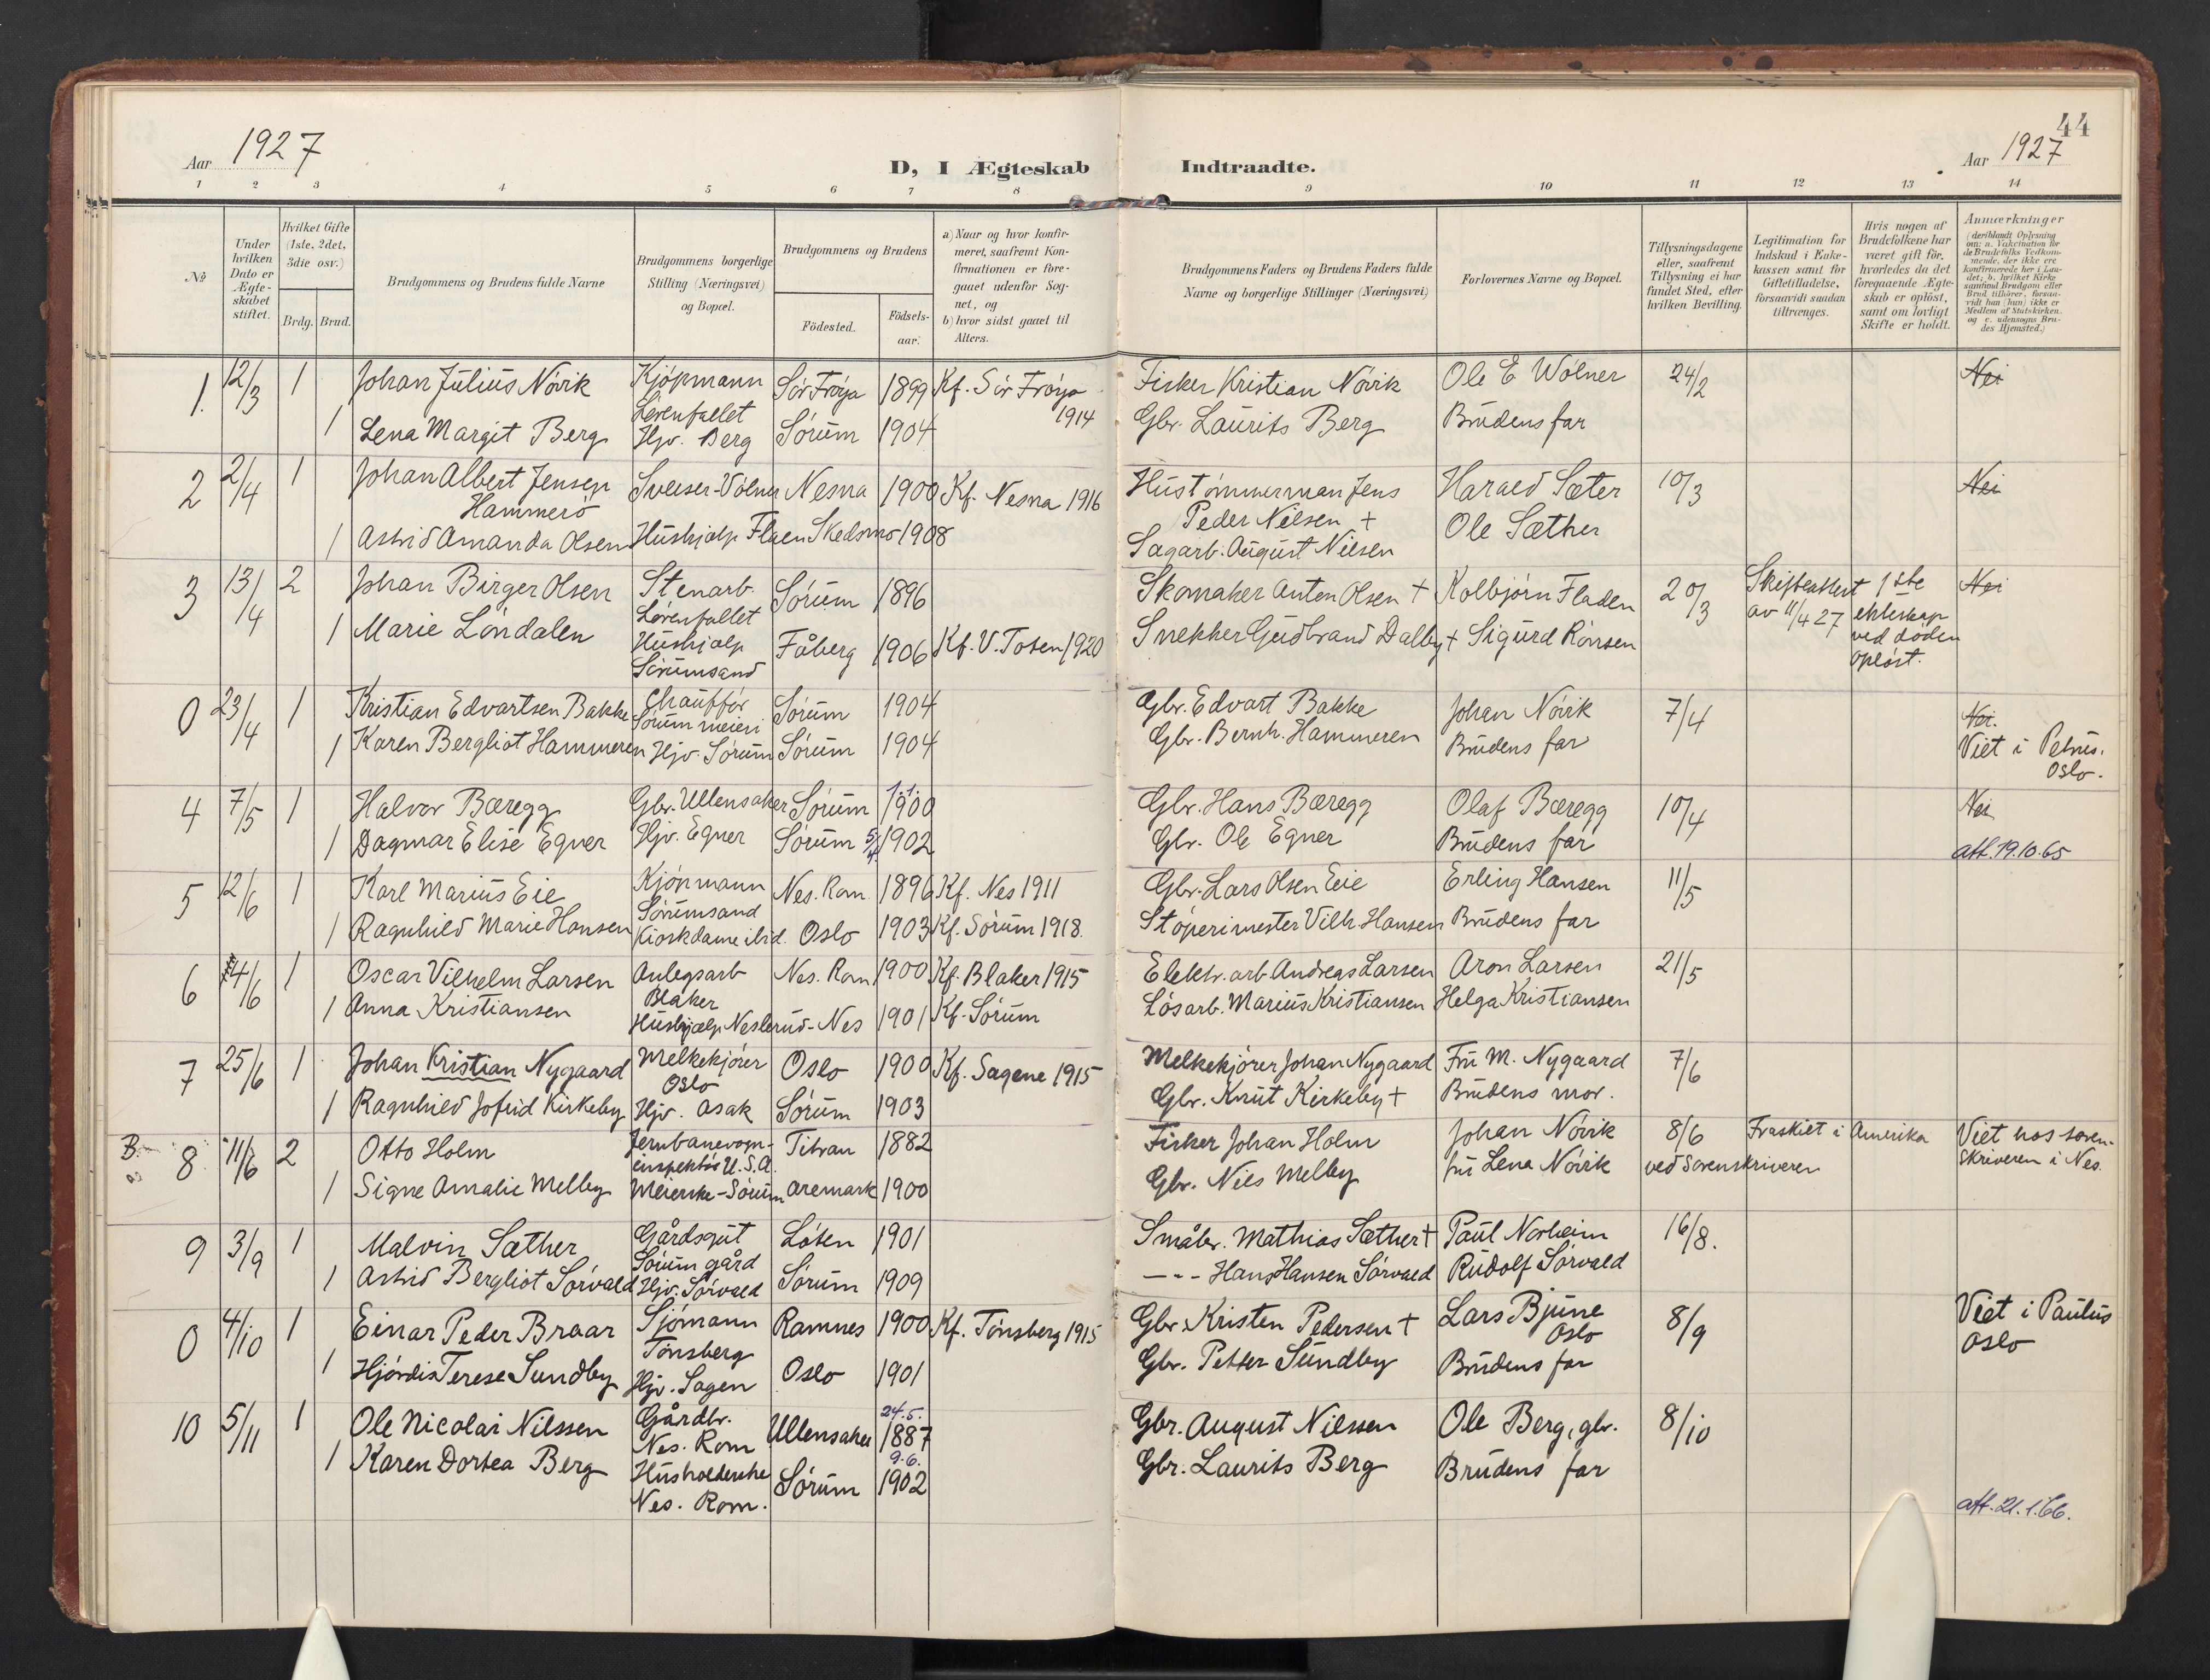 44
Aar 1927
D, I Ægteskab Indtraadte.
Aar 1927
1 2 3 4 5 6 7 8 9 10 11 12 13 14
№
Under hvilken Dato er Ægteskabet stiftet.
Hvilket Gifte (1ste, 2det, 3die osv.)
Brdg. Brud.
Brudgommens og Brudens fulde Navne
Brudgommens borgerlige Stilling (Næringsvei) og Bopæl.
Brudgommens og Brudens
Fødested. Fødselsaar.
a) Naar og hvor konfirmeret, saafremt Konfirmationen er foregaaet udenfor Sognet, og
b) hvor sidst gaaet til Alters.
Brudgommens Faders og Brudens Faders fulde Navne og borgerlige Stillinger (Næringsvei)
Forlovernes Navne og Bopæl.
Tillysningsdagene eller, saafremt Tillysning ei har fundet Sted, efter hvilken Bevilling.
Legitimation for Indskud i Enkekassen samt for Giftetilladelse, forsaavidt saadan tiltrænges.
Hvis nogen af Brudefolkene har været gift før, hvorledes da det foregaaende Ægteskab er opløst, samt om lovligt Skifte er holdt.
Anmærkninger
(deriblandt Oplysning om: a. Vakcination for de Brudefolks Vedkommende, der ikke ere konfirmerede her i Landet; b. hvilket Kirkesamfund Brudgom eller Brud tilhører, forsaavidt han (hun) ikke er Medlem af Statskirken, og c. udensogns Brudes Hjemsted.)
1. 12/3 1 Johan Julius Nóvik Kjópmann Sór Fróya 1899 Kf. Sór Fróya Fisker Kristian Nóvik Ole E Wólner 24/2 Nei
Lórenfallet 1914
1 Lena Margit Berg Hjv. Berg Sórum 1904 Gbr. Laurits Berg Brudens far
2 2/4 1 Johan Albert Jensen Sveiser-Vólner Nesna 1900 Kf. Nesna 1916 Hustómmerman Jens Harald Sæter 10/3 Nei
Hammeró Peder Nilsen +
1 Astrid Amanda Olsen Hushjælp Flaen Skedsmo 1908 Sagarb. August Nilsen Ole Sæther
3 13/4 2 Johan Birger Olsen Stenarb. Sórum 1896 Skomaker Anton Olsen + Kolbjórn Fladen 20/3 Skifteattest 1ste Nei
Lórenfallet av 11/4 27 ekteskap
1 Marie Lóndalen Hushjælp Fåberg 1906 Kf. V. Toten 1920 Snekker Gudbrand Dalby + Sigurd Rónsen ved dóden
Sórumsand oplóst.
0 23/4 1 Kristian Edvartsen Bakke Chauffór Sórum 1904 Gbr. Edvart Bakke Johan Nóvik 7/4 Nei.
Sórum meieri Viet i Petrus.
1 Karen Bergliot Hammeren Hjv. Sórum Sórum 1904 Gbr. Bernh. Hammeren Brudens far Oslo.
4 7/5 1 Halvor Bæregg Gbr. Ullensaker Sórum 1.1. 1900 Gbr. Hans Bæregg Olaf Bæregg 10/4 Nei
1 Dagmar Elise Egner Hjv. Egner Sórum 5/4 1902 Gbr. Ole Egner Brudens far att. 19.10.65
5 12/6 1 Karl Marius Eie Kjópmann Nes. Rom. 1896 Kf. Nes 1911 Gbr. Lars Olsen Eeie Erling Hansen 11/5
Sórumsand
1 Ragnhild Marie Hansen Kioskdame ibid. Oslo 1903 Kf. Sórum 1918. Stóperimester Vilh. Hansen Brudens far
6 4/6 1 Oscar Vilhelm Larsen Anlegsarb Nes. Rom 1900 Kf. Blaker 1915 Elektr. arb Andreas Larsen Aron Larsen 21/5
Blaker
1 Anna Kristiansen Hushjælp Neslerud- Nes 1901 Kf. Sórum Lósarb. Marius Kristiansen Helga Kristiansen
7 25/6 1 Johan Kristian Nygaard Melkekjórer Oslo 1900 Kf. Sagene 1915 Melkekjórer Johan Nygaard Fru M. Nygaard 7/6
Oslo
1 Ragnhild Jofrid Kirkeby Hjv. Asak Sórum 1903 Gbr. Knut Kirkeby + Brudens mor.
B. 8 11/6 2 Otto Holm Jernbanevogn- Titran 1882 Fisker Johan Holm Johan Nóvik 8/6 Fraskilt i Amerika Viet hos soren-
inspektór U.S.A. fru Lena Nóvik ved Sorenskriveren skriveren i Nes.
1 Signe Amalie Melby Meierske-Sórum Aremark 1900 Gbr. Nils Melby
9 3/9 1 Malvin Sæther Gårdsgut Lóten 1901 Småbr. Mathias Sæther + Paul Norheim 16/8.
Sórum gård
1 Astrid Bergliot Sórvald Hjv. Sórvald Sórum 1909 - - - Hans Hansen Sórvald Rudolf Sórvald
0 4/10 1 Einar Peder Braar Sjómann Ramnes 1900 Kf. Tónsberg 1915 Gbr. Kristen Pedersen + Lars Bjune 8/9 Viet i Paulus
Tónsberg Oslo Oslo
1 Hjórdis Terese Sundby Hjv. Sagen Oslo 1901 Gbr. Petter Sundby Brudens far
10 5/11 1 Ole Nicolai Nilssen Gårdbr. Ullensaker 24.5. 1887 Gbr. August Nilssen Ole Berg, gbr. 8/10
Nes. Rom
1 Karen Dortea Berg Husholderske Sórum 9.6. 1902 Gbr. Laurits Berg Brudens far
Nes. Rom. att. 21.1.66.